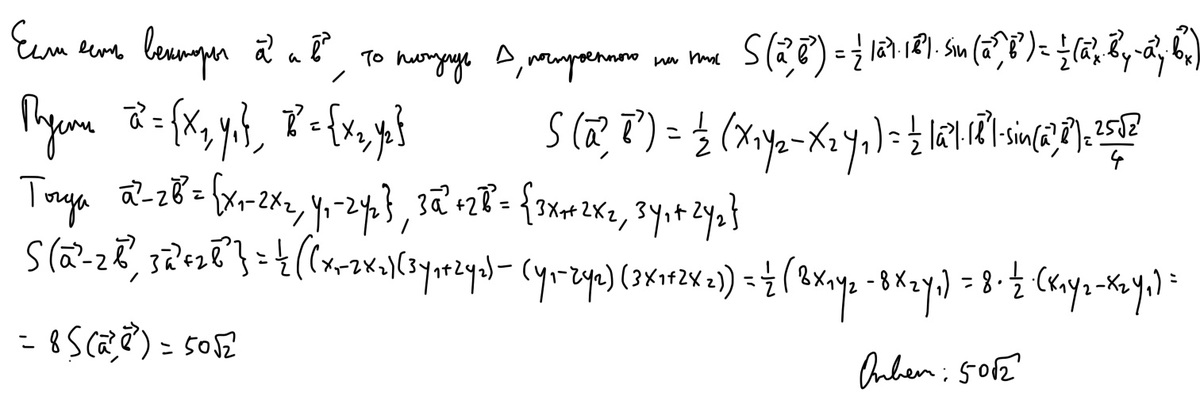 Если есть векторы a⃗ и b⃗, то площадь Δ, построенного на них S(a⃗, b⃗) = 1/2 |a⃗|·|b⃗|·sin(a⃗, b⃗) = 1/2(a⃗ₓ·b⃗ᵧ - a⃗ᵧ·b⃗ₓ)
Пусть a⃗ = {x₁, y₁}, b⃗ = {x₂, y₂} S(a⃗, b⃗) = 1/2 (x₁y₂ - x₂y₁) = 1/2 |a⃗|·|b⃗|·sin(a⃗, b⃗) = 25√2/4
Тогда a⃗ - 2b⃗ = {x₁ - 2x₂, y₁ - 2y₂}, 3a⃗ + 2b⃗ = {3x₁ + 2x₂, 3y₁ + 2y₂}
S(a⃗ - 2b⃗, 3a⃗ + 2b⃗} = 1/2((x₁ - 2x₂)(3y₁ + 2y₂) - (y₁ - 2y₂)(3x₁ + 2x₂)) = 1/2(8x₁y₂ - 8x₂y₁) = 8 · 1/2 · (x₁y₂ - x₂y₁) =
= 8S(a⃗, b⃗) = 50√2
Ответ: 50√2